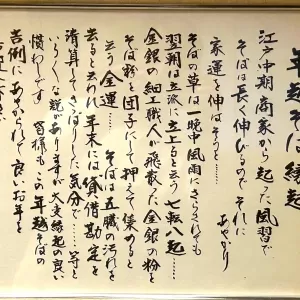 年越そば縁起
江戸中期商家から起った風習で
そばは長く伸びるので それに
あやかり
家運を伸ばそうと‥‥
そばの草は一晩中風雨にさらされても
翌朝は立派に立上ると云う 七転八起‥‥
金銀の細工職人が飛散た金銀の粉を
そば粉を団子にして押えて集めると
云う 金運‥‥ そばは五臓の汚れを
去ると云われ 年末には貸借勘定を
清算してさっぱりした気分で‥‥等と
いろいろな説がありますが大変縁起の良い
慣わしです 皆様もこの年越そばの
吉例にあやかられて良いお年を